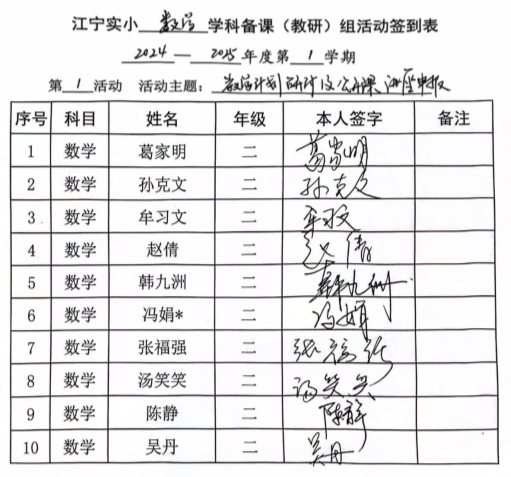 江宁实小 数学 学科备课（教研）组活动签到表
2024 — 2025 年度第 1 学期
第 1 活动 活动主题： 教学计划研讨及公开课、讲座申报
序号 科目 姓名 年级 本人签字 备注
1 数学 葛家明 二 葛家明
2 数学 孙克文 二 孙克文
3 数学 牟习文 二 牟习文
4 数学 赵倩 二 赵倩
5 数学 韩九洲 二 韩九洲
6 数学 冯娟* 二 冯娟
7 数学 张福强 二 张福强
8 数学 汤笑笑 二 汤笑笑
9 数学 陈静 二 陈静
10 数学 吴丹 二 吴丹